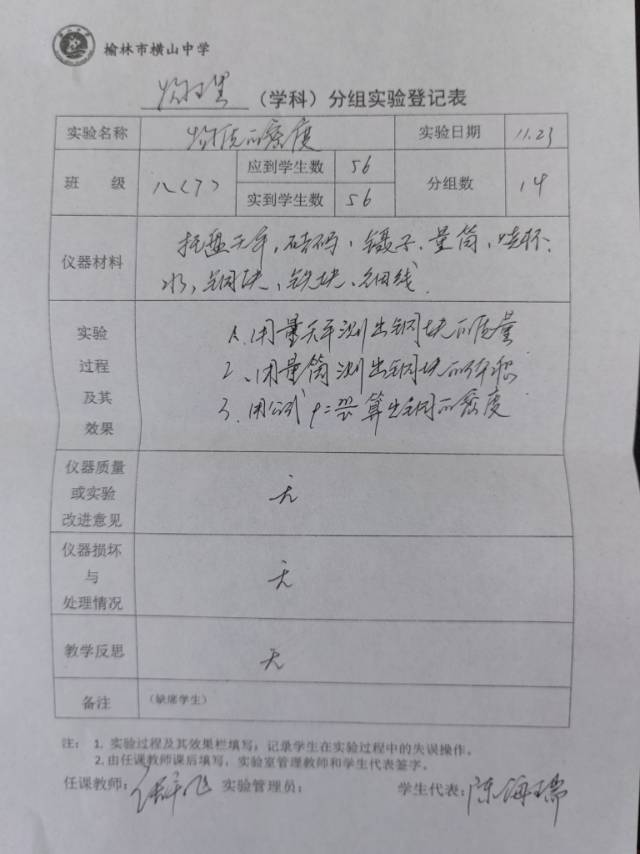 榆林市横山中学
物理（学科）分组实验登记表
实验名称 物质的密度 实验日期 11.23
班 级 八(7) 应到学生数 56 分组数 14
实到学生数 56
仪器材料 托盘天平,砝码,镊子,量筒,烧杯,
水,铜块,铁块,细线.
实验过程及其效果
1.用量天平测出铜块的质量
2.用量筒测出铜块的体积
3.用公式ρ=m/v算出铜的密度
仪器质量或实验改进意见 无
仪器损坏与处理情况 无
教学反思 无
备注 （缺席学生）
注： 1. 实验过程及其效果栏填写：记录学生在实验过程中的失误操作。
2.由任课教师课后填写，实验室管理教师和学生代表签字。
任课教师： 实验管理员： 学生代表：陈海瑞